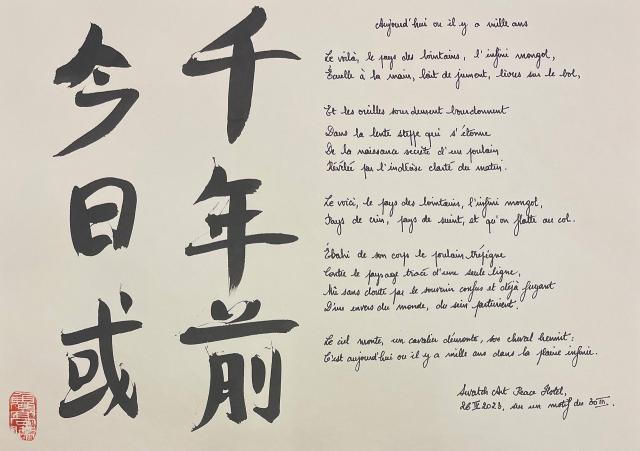 今日或
千年前
Aujourd'hui ou il y a mille ans
Le voilà, le pays des lointains, l'infini mongol,
Écuelle à la main, lait de jument, lèvres sur le bol,
Et les oreilles sourdement bourdonnent
Dans la lente steppe qui s'étonne
De la naissance secrète d'un poulain
Révélée par l'indécise clarté du matin.
Le voici, le pays des lointains, l'infini mongol,
Pays de crin, pays de suint, et qu'on flatte au col.
Ébahi de son corps le poulain trépigne
Contre le paysage tracé d'une seule ligne,
sans doute par le souvenir confus et déjà fuyant
D'un envers du monde, du sein parturient.
Le ciel monte, un cavalier démonte, son cheval hennit :
C'est aujourd'hui ou il y a mille ans dans la plaine infinie.
Swatch Art Peace Hotel,
2023, sur un motif du 30 III.